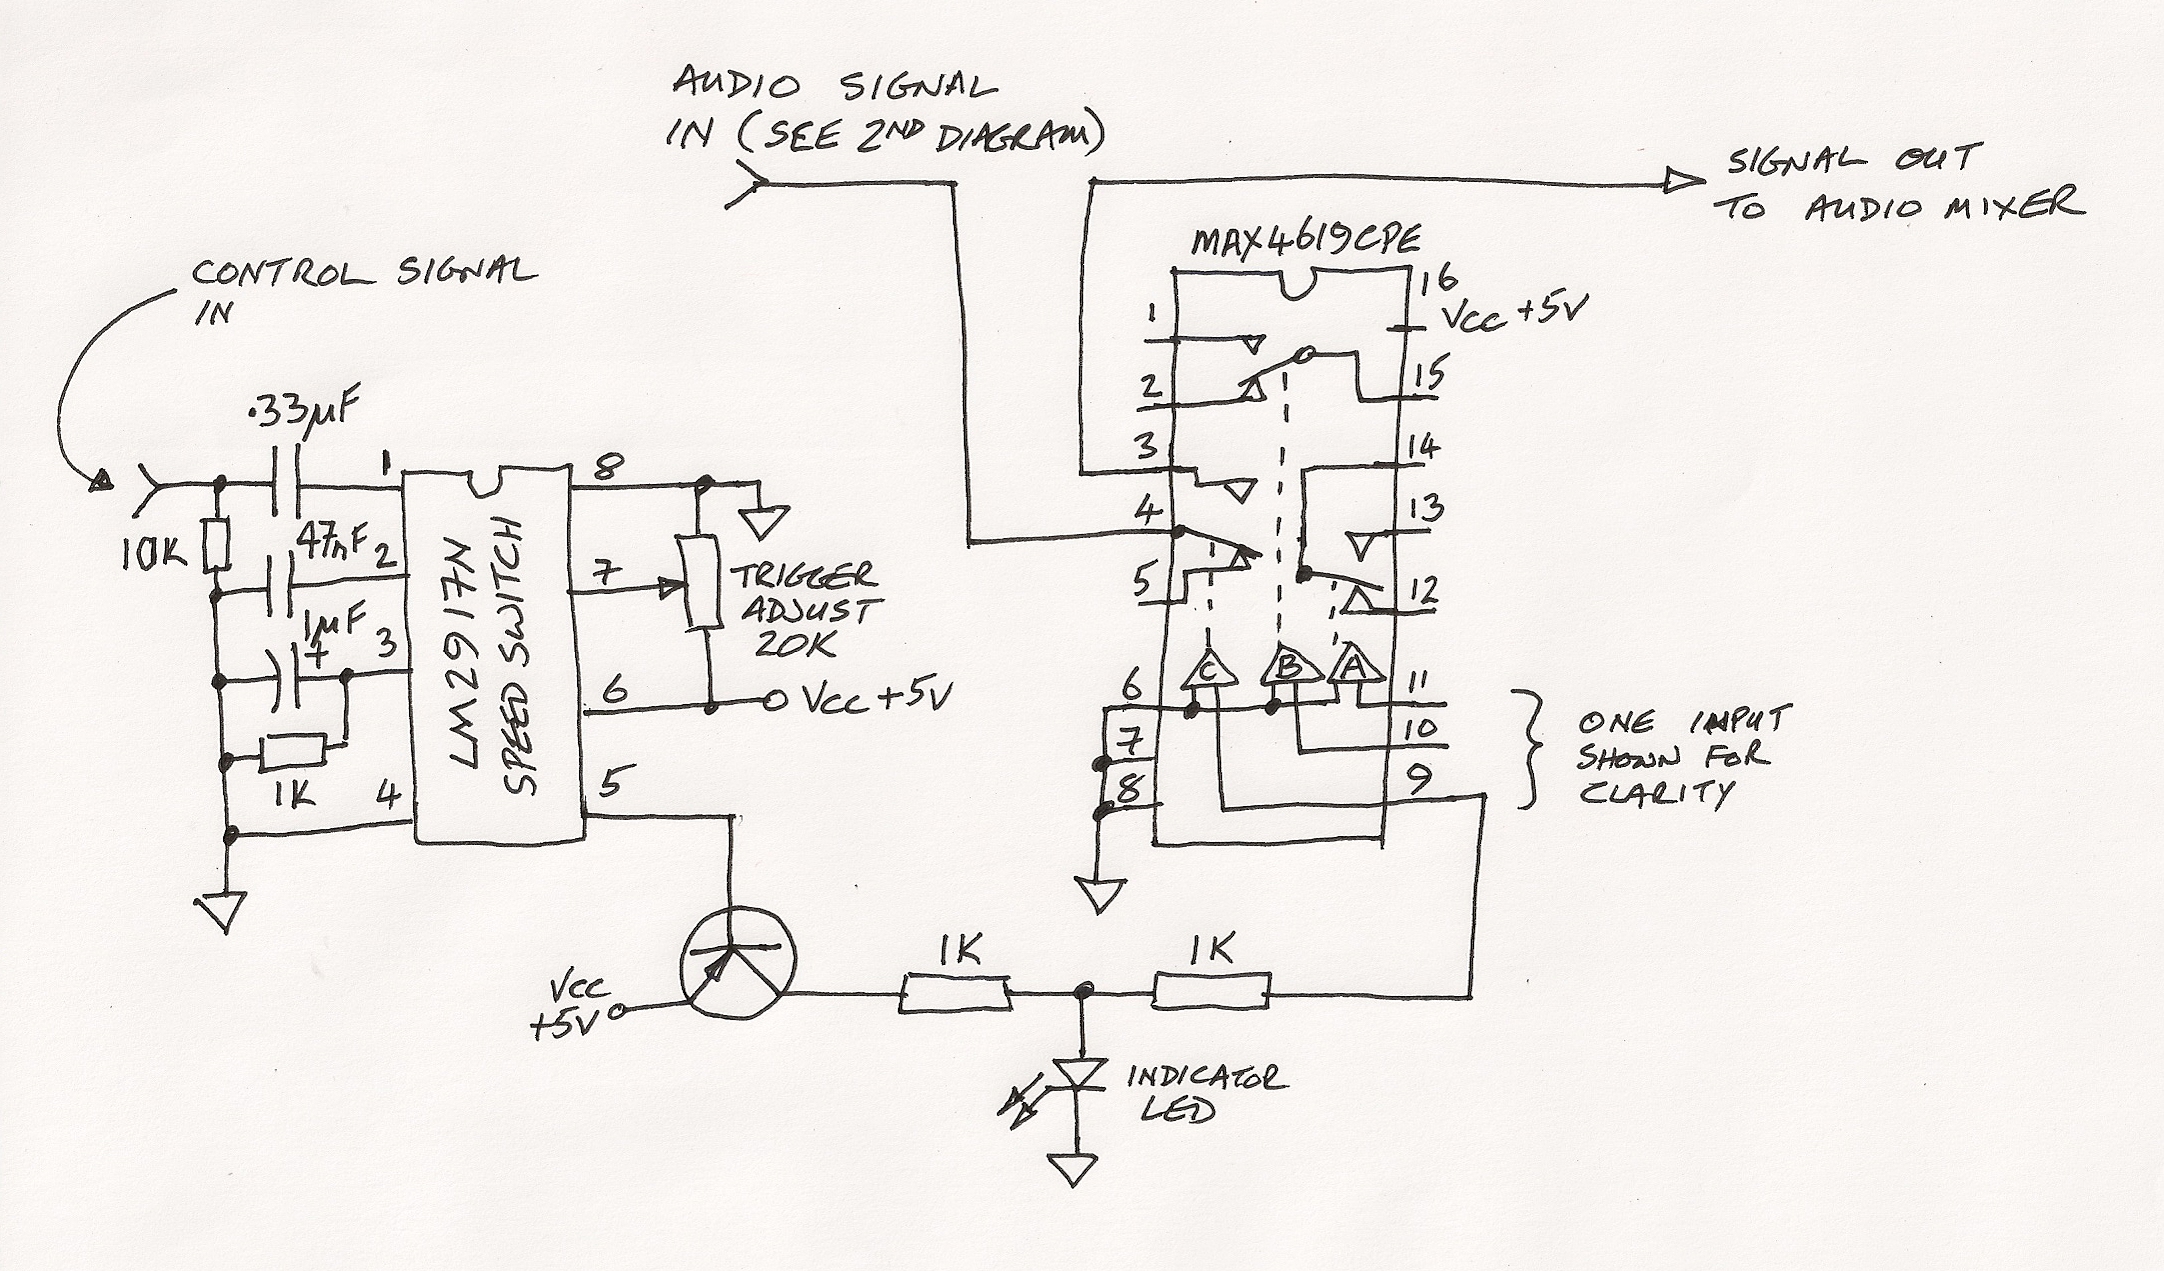 AUDIO SIGNAL
IN (SEE 2ND DIAGRAM)
SIGNAL OUT
TO AUDIO MIXER
CONTROL SIGNAL
IN
MAX4619CPE
1
2
3
4
5
6
7
8
16
Vcc +5V
15
14
13
12
11
10
9
C
B
A
ONE INPUT
SHOWN FOR
CLARITY
.33µF
10K
47nF
1µF
+
1K
1
2
3
4
LM2917N
SPEED SWITCH
8
7
6
5
TRIGGER
ADJUST
20K
Vcc +5V
Vcc
+5V
1K
1K
INDICATOR
LED